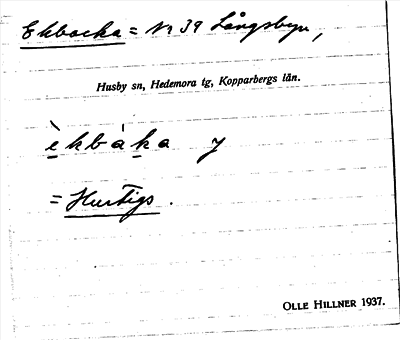 Ekbacka = Nr 39 Långsbyn,
Husby sn, Hedemora tg, Kopparbergs län.
èkbàka y
= Hurtigs.
OLLE HILLNER 1937.